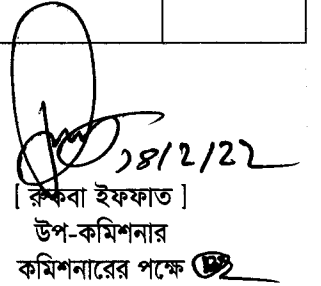 ১৪/2/22
[ রুকবা ইফফাত ]
উপ-কমিশনার
কমিশনারের পক্ষে